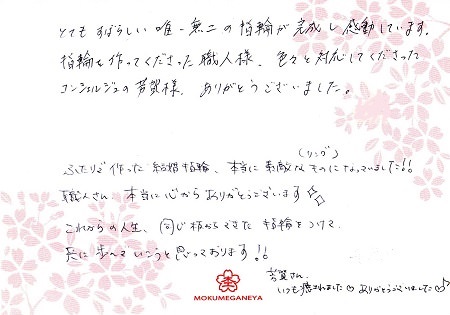 とてもすばらしい唯一無二の指輪が完成し感動しています。
指輪を作ってくださった職人様、色々と対応してくださった
コンシェルジュの芳賀様、ありがとうございました。
(リング)
ふたりで作った結婚指輪、本当に素敵なものになっていました!!
職人さん、本当に心からありがとうございます
これからの人生、同じ柄からできた指輪をつけて、
共に歩んでいこうと思っております!!
芳賀さん、
いつも癒されました♡ ありがとうございました♡♪
MOKUMEGANEYA